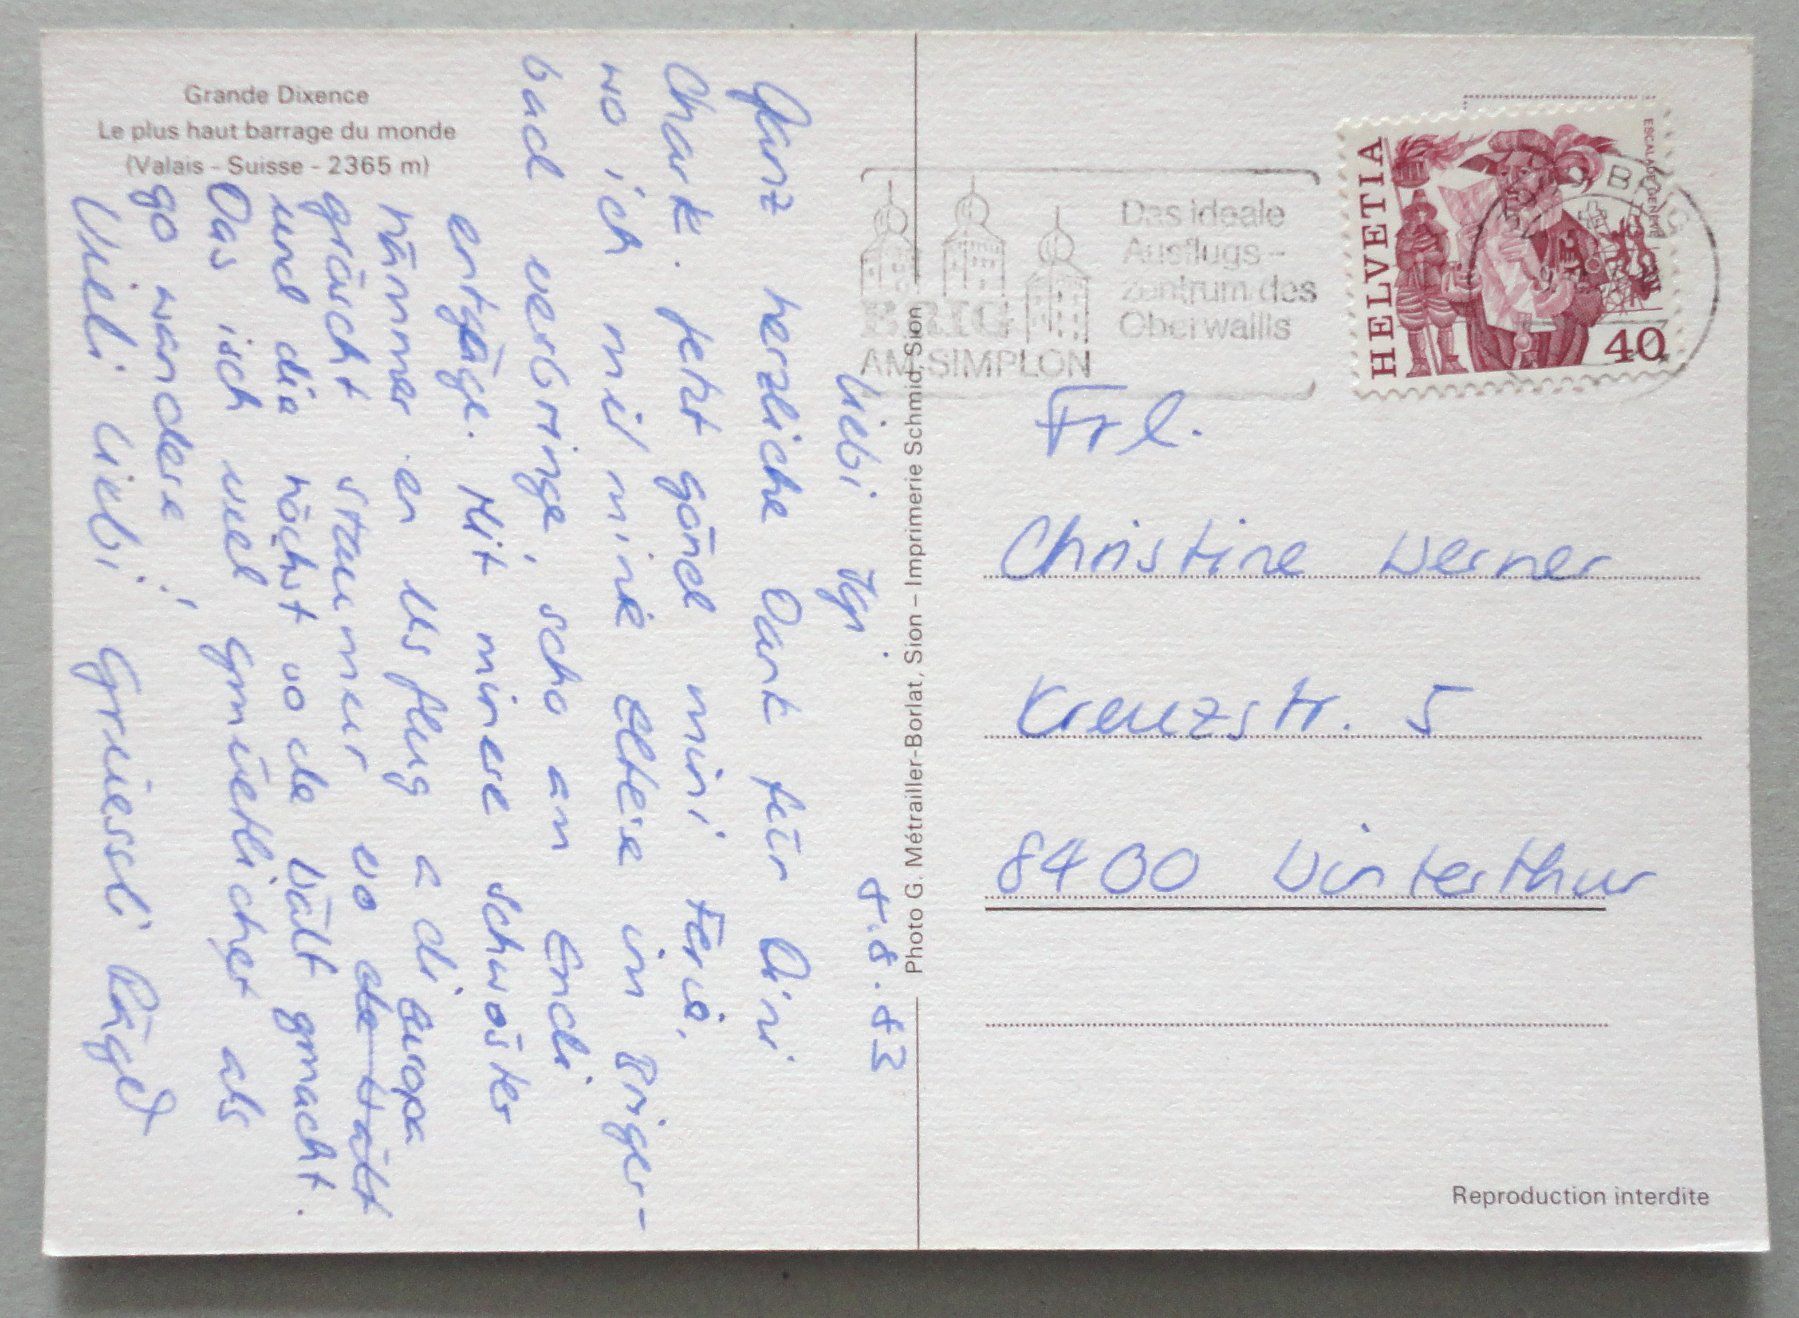 Grande Dixence
Le plus haut barrage du monde
(Valais - Suisse - 2365 m)
8.8.83
Ganz herzliche Dank für Dini
Charte. Jetzt gönd mini Ferie,
wo ich mit mine Eltere im Briger-
bad verbringe, scho am Endi
entgäge. Mit minere Schwöster
nämmer en Usflug a di europa
gröscht Staumur wo de Wält
und die höchst vo de Wält gmacht.
Das isch viel gmüetlicher als
go wandere!
Vieli liebi Grüessli
Photo G. Métrailler-Borlat, Sion – Imprimerie Schmid, Sion
BRIG
AM SIMPLON
Das ideale
Ausflugs-
zentrum des
Oberwallis
HELVETIA
ESCALADE GENÈVE
40
BRIG
Frl.
Christine Werner
Kreuzstr. 5
8400 Winterthur
Reproduction interdite